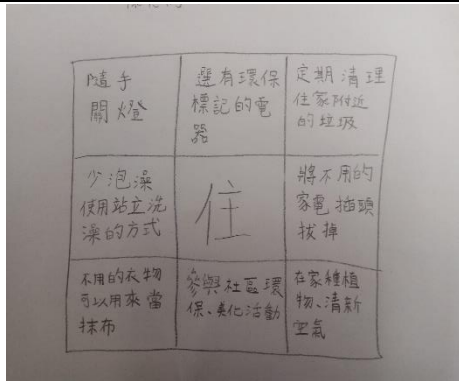 隨手
關燈
選有環保
標記的電
器
定期清理
住家附近
的垃圾
少泡澡
使用站立洗
澡的方式
住
將不用的
家電插頭
拔掉
不用的衣物
可以用來當
抹布
參與社區環
保、美化活動
在家種植
物、清新
空氣